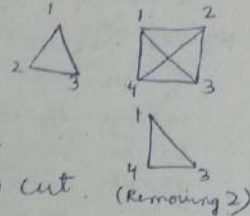 1
2 3
1 2
4 3
1
4 3
cut. (Removing 2)